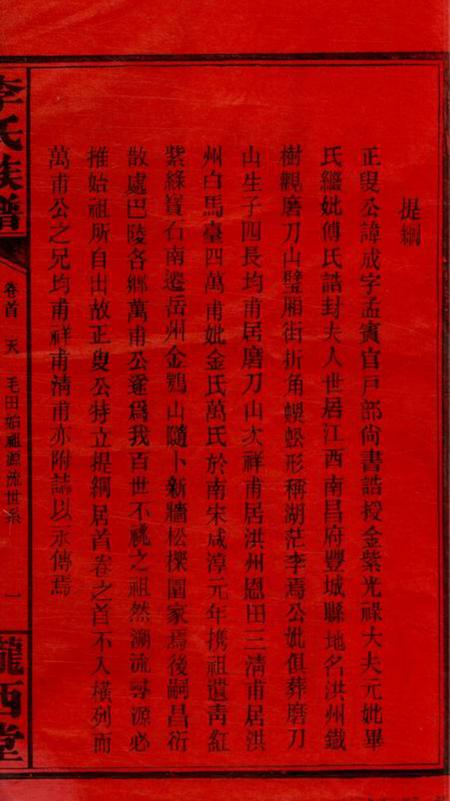 提綱
正叟公諱成字孟賓官戸部尚書誥授金紫光祿大夫元妣畢
氏繼妣傅氏誥封夫人世居江西南昌府豐城縣地名洪州鐵
樹觀磨刀山壁廂街折角蜈蚣形稱湖茫李焉公妣俱葬磨刀
山生子四長均甫居磨刀山次祥甫居洪州恩田三淸甫居洪
州白馬臺四萬甫妣金氏萬氏於南宋咸淳元年携祖遺靑紅
紫綠寶石南遷岳州金鶚山隨卜新牆松樑圍家焉後嗣昌衍
散處巴陵各鄉萬甫公遂爲我百世不祧之祖然溯流尋源必
推始祖所自出故正叟公特立提綱居首卷之首不入橫列而
萬甫公之兄均甫祥甫淸甫亦附誌以永傳焉
李氏族譜
卷首 天 毛田始祖源流世系 一
隴西堂